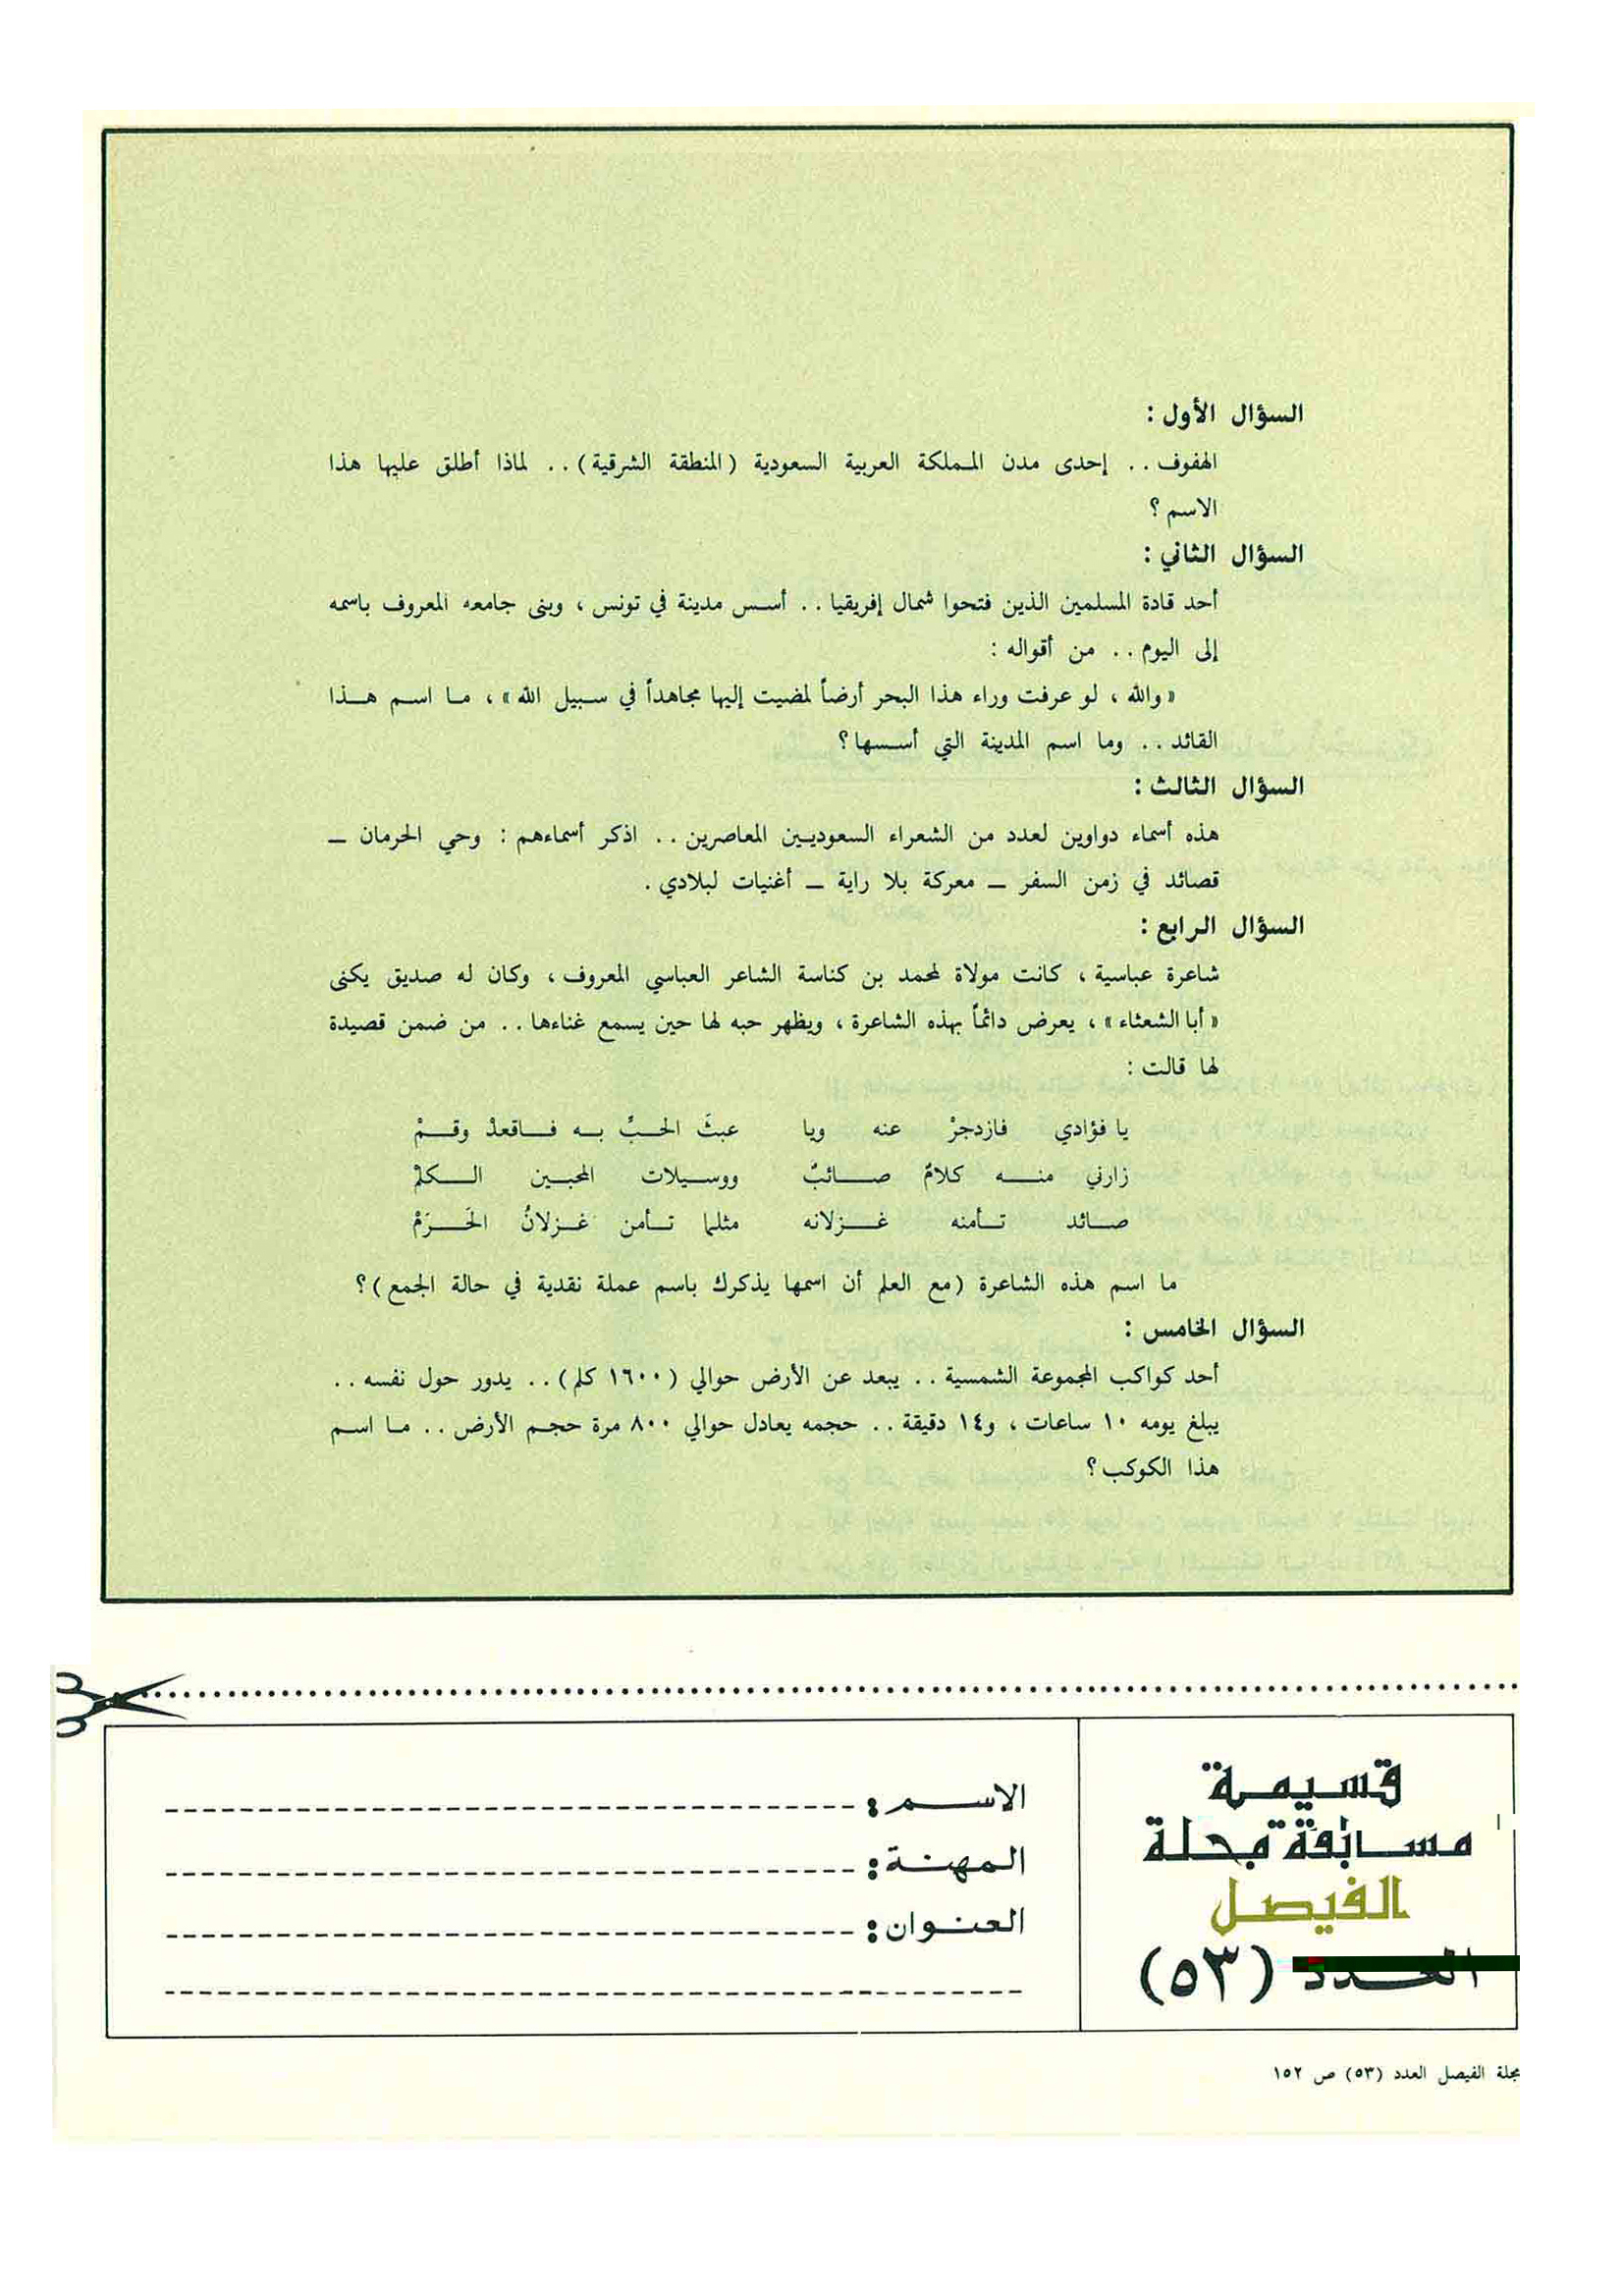 السؤال الأول :
الهفوف . . إحدى مدن المملكة العربية السعودية (المنطقة الشرقية) . . لماذا أطلق عليها هذا
الاسم ؟
السؤال الثاني :
أحد قادة المسلمين الذين فتحوا شمال إفريقيا . . أسس مدينة في تونس ، وبنى جامعه المعروف باسمه
إلى اليوم . . من أقواله :
« والله ، لو عرفت وراء هذا البحر أرضاً لمضيت إليها مجاهداً في سبيل الله » ، ما اسم هذا
القائد . . وما اسم المدينة التي أسسها ؟
السؤال الثالث :
هذه أسماء دواوين لعدد من الشعراء السعوديين المعاصرين . . اذكر أسماءهم : وحي الحرمان ــ
قصائد في زمن السفر ــ معركة بلا راية ــ أغنيات لبلادي .
السؤال الرابع :
شاعرة عباسية ، كانت مولاة لمحمد بن كناسة الشاعر العباسي المعروف ، وكان له صديق يكنى
« أبا الشعثاء » ، يعرض دائماً بهذه الشاعرة ، ويظهر حبه لها حين يسمع غناءها . . من ضمن قصيدة
لها قالت :
يا فؤادي فازدجرْ عنه ويا عبثَ الحبِّ به فاقعدْ وقمْ
زارني منه كلامٌ صائبٌ ووسيلات المحبين الكلمْ
صائد تأمنه غزلانه مثلما تأمن غزلانُ الحَرَمْ
ما اسم هذه الشاعرة (مع العلم أن اسمها يذكرك باسم عملة نقدية في حالة الجمع) ؟
السؤال الخامس :
أحد كواكب المجموعة الشمسية . . يبعد عن الأرض حوالي (١٦٠٠ كلم) . . يدور حول نفسه . .
يبلغ يومه ١٠ ساعات ، و١٤ دقيقة . . حجمه يعادل حوالي ٨٠٠ مرة حجم الأرض . . ما اسم
هذا الكوكب ؟
قسيمة
مسابقة مجلة
الفيصل
العدد (٥٣)
الاسم :
المهنة :
العنوان :
مجلة الفيصل العدد (٥٣) ص ١٥٢